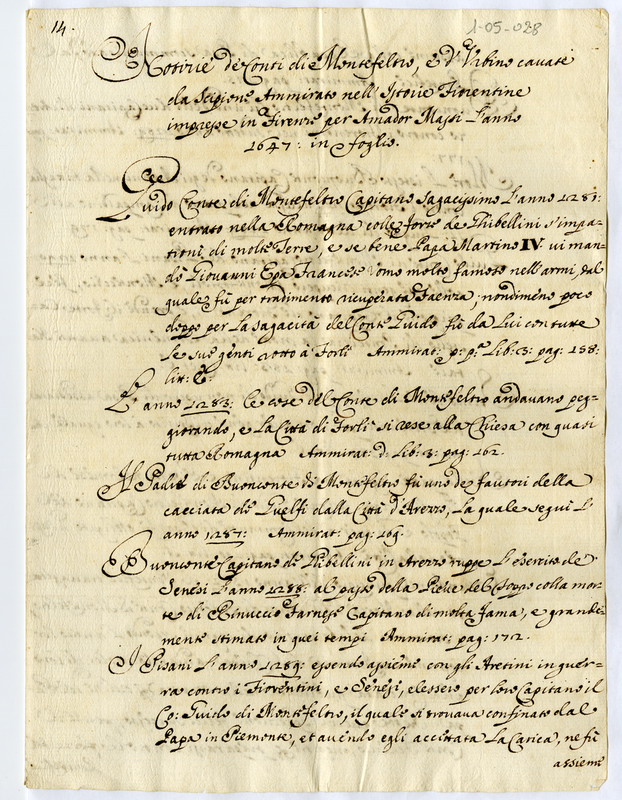 14.
1-05-028
Notizie de Conti di Montefeltro, e d'Urbino cavate
da Scipione Ammirato nell'Istorie Fiorentine
impresse in Firenze per Amador Massi L'anno
1647: in foglio.
Guido Conte di Montefeltro Capitano sagacissimo L'anno 1281:
entrato nella Romagna colle forze de Ghibellini s'impa-
tronì di molte Terre, e se bene Papa Martino IV. vi man-
dò Giovanni Epa Francese Vomo molto famoso nell'armi, dal
quale fù per tradimento ricuperata Faenza, nondimeno poco
doppo per La sagacità del Conte Guido fù da Lui con tutte
le sue genti rotto à Forlì Ammirat: p: p.ª Lib: 3: pag: 158:
litt: E:
L'anno 1283: le cose del Conte di Montefeltro andavano peg-
giorando, e La Città di Forlì si rese alla Chiesa con quasi
tutta Romagna Ammirat: d: Lib: 3: pag: 162.
Il Padre di Buonconte di Montefeltro fù uno de fautori della
cacciata de Guelfi dalla Città d'Arezzo, La quale seguì L'
anno 1287: Ammirat: pag: 169.
Buonconte Capitano de Ghibellini in Arezzo ruppe L'esercito de
Senesi L'anno 1288: al passo della Pieve del Toppo colla mor-
te di Rinuccio Farnese Capitano di molta fama, e grande-
mente stimato in quei tempi Ammirat: pag: 172.
I Pisani L'anno 1289: essendo assieme con gli Aretini in guer-
ra contro i Fiorentini, e Senesi, elessero per loro Capitano il
Co: Guido di Montefeltro, il quale si trovava confinato dal
Papa in Piemonte, et avendo egli accettata La carica, ne fù
assieme